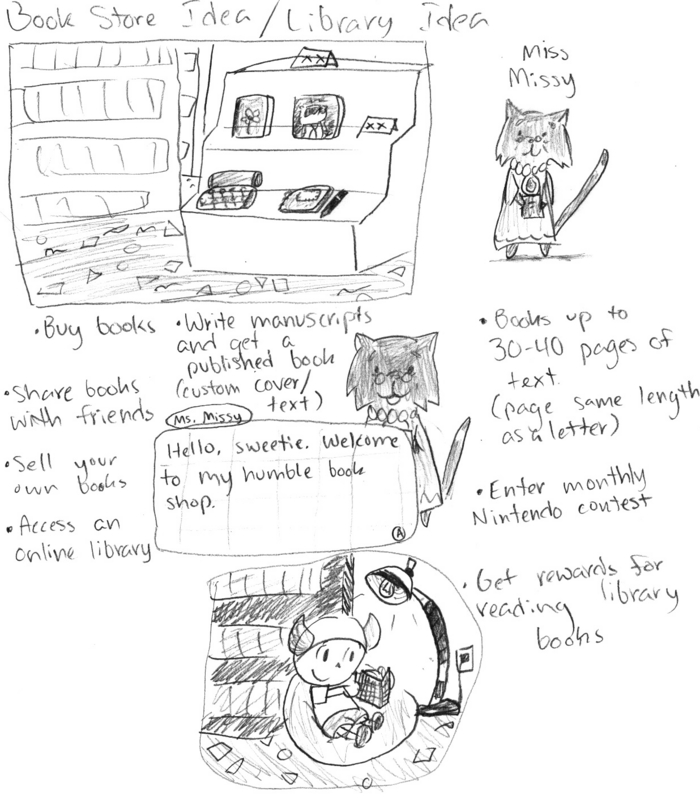 Book Store Idea / Library Idea
Miss
Missy
XX
XX
• Buy books
• Write manuscripts
and get a
published book
(custom cover/
text)
• Books up to
30-40 pages of
text.
(page same length
as a letter)
• Share books
with friends
Ms. Missy
Hello, sweetie. Welcome
to my humble book
shop.
A
• Sell your
own books
• Enter monthly
Nintendo contest
• Access an
online library
• Get rewards for
reading library
books